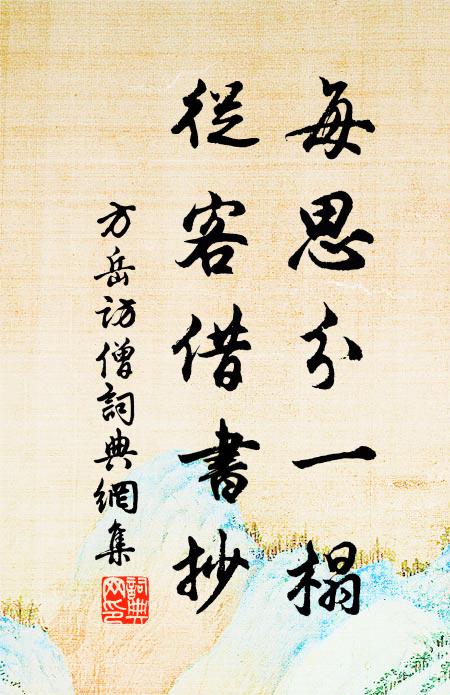 每思分一榻
從客借書抄
方岳訪僧詞典網集
詞典網印